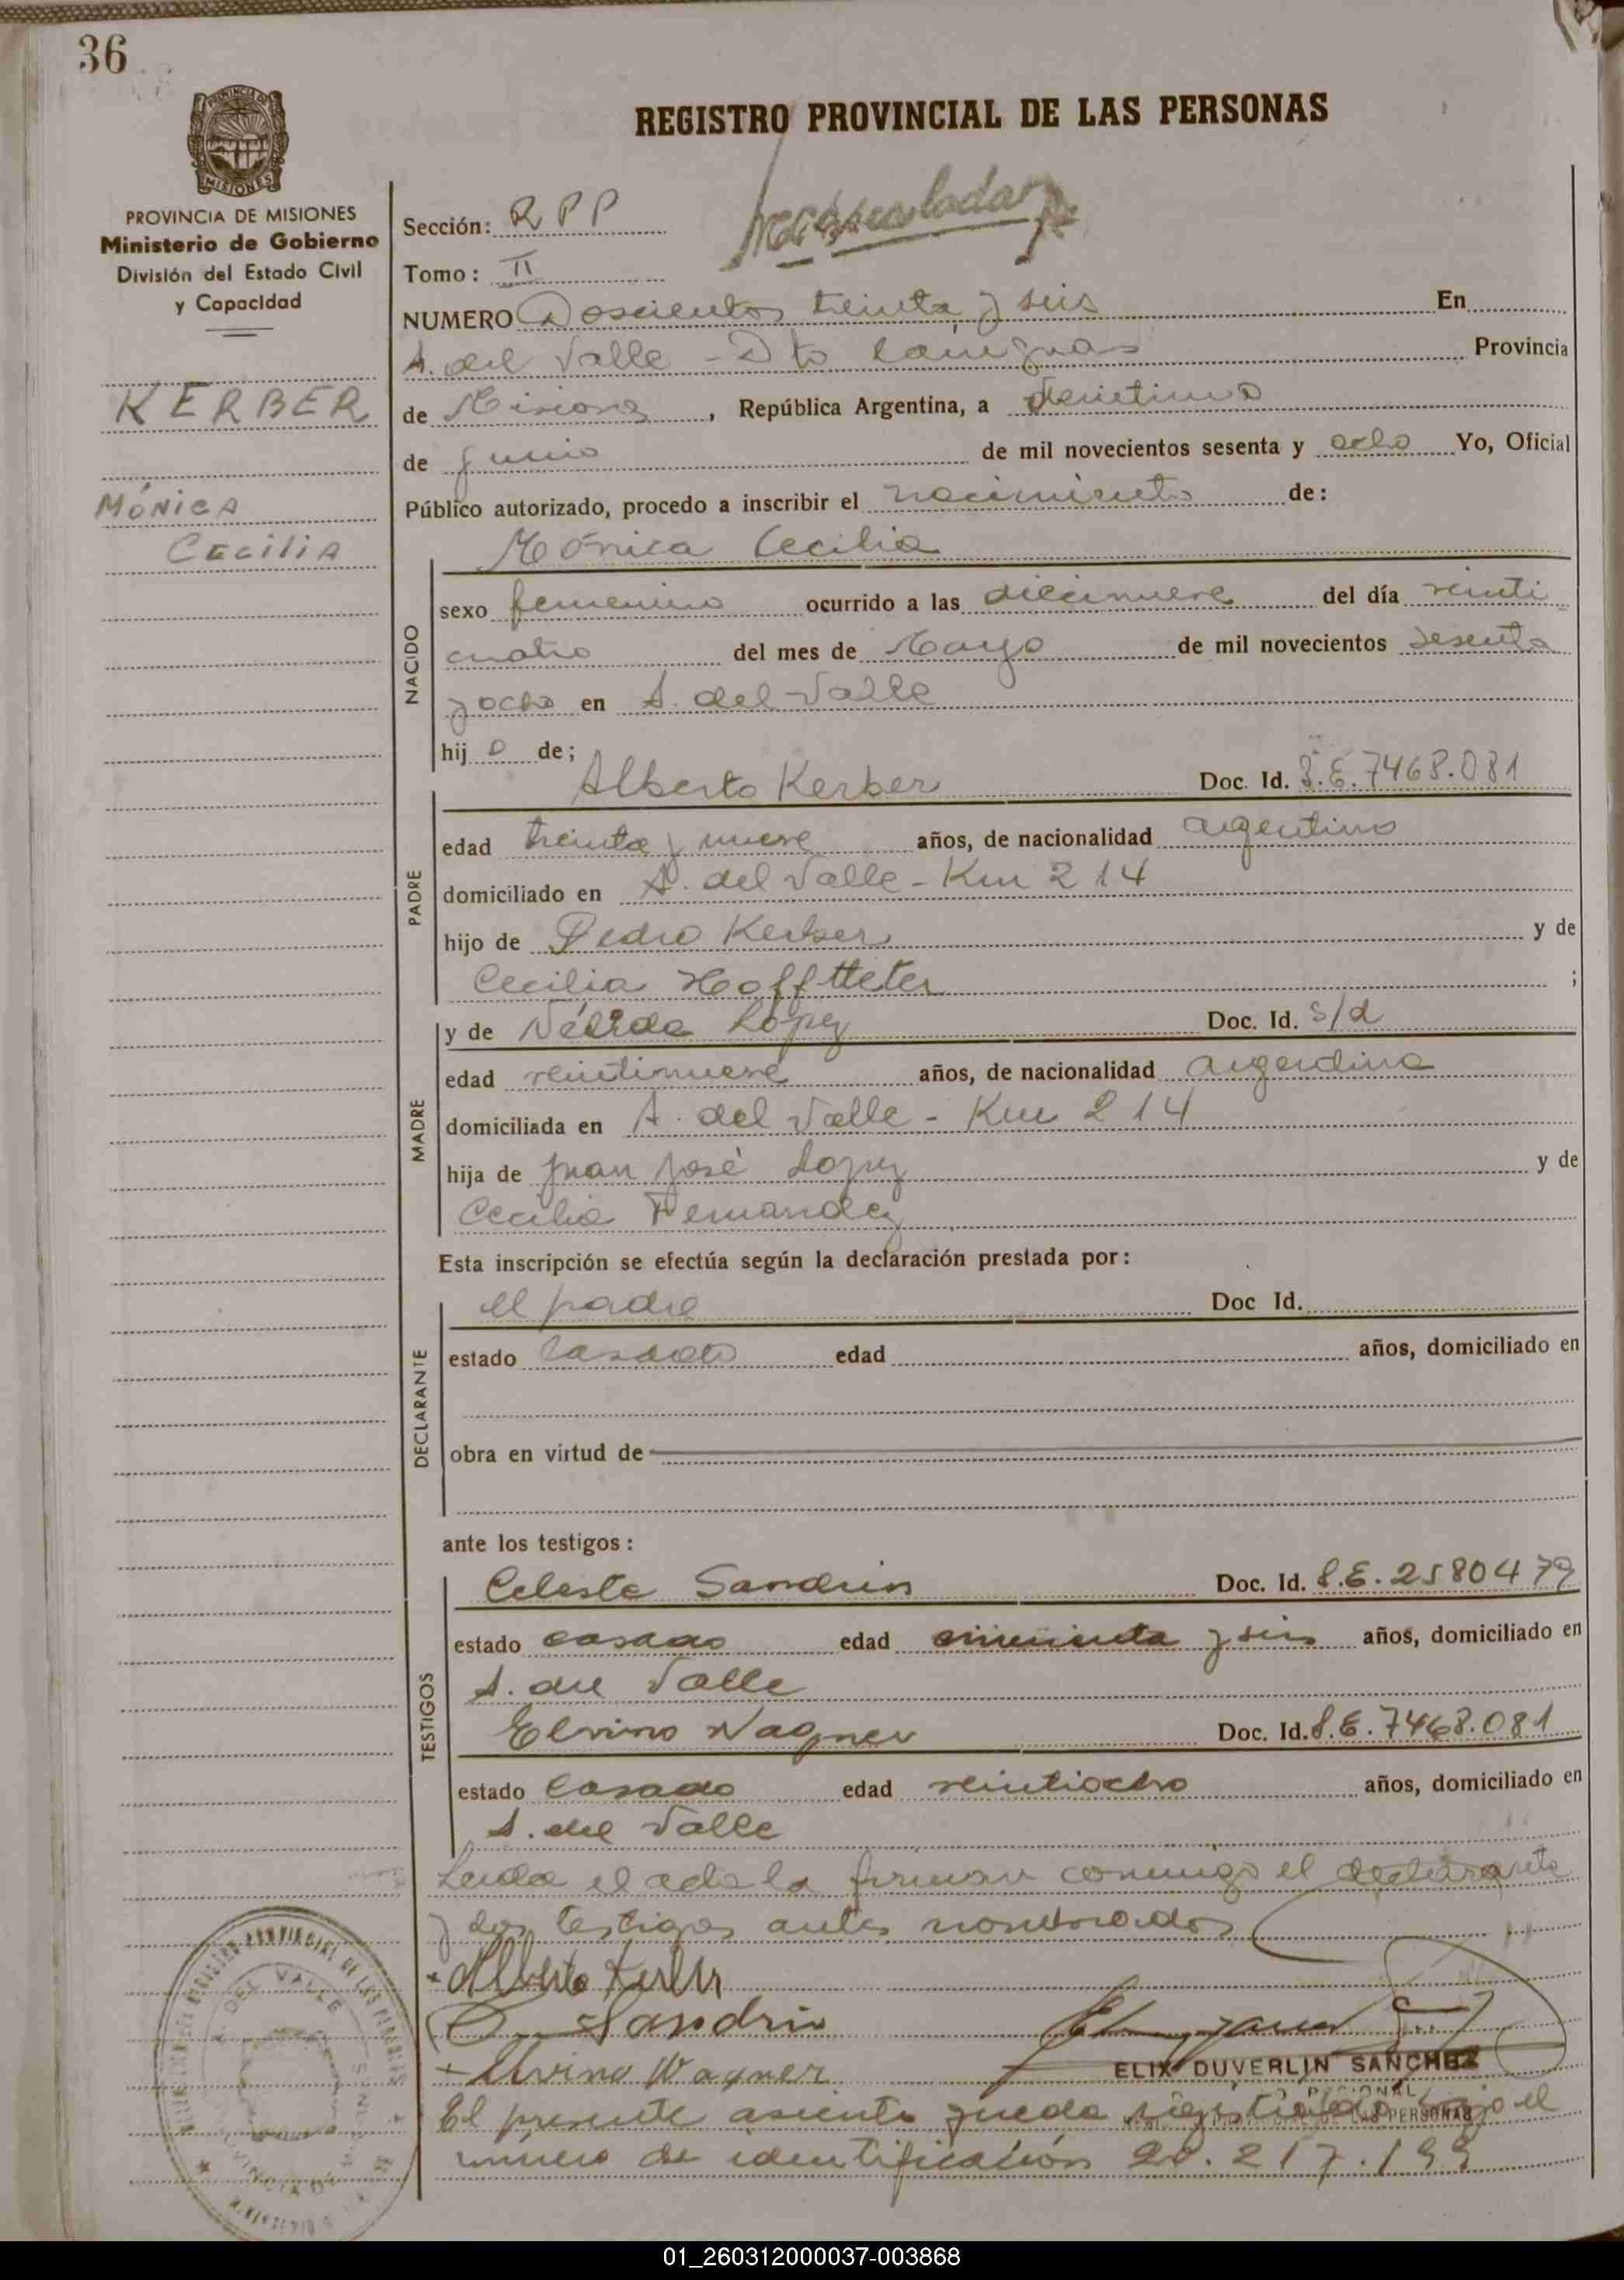 36
REGISTRO PROVINCIAL DE LAS PERSONAS
PROVINCIA DE MISIONES
Ministerio de Gobierno
División del Estado Civil
y Capacidad
KERBER
MÓNICA
CECILIA
Sección: R P P
Tomo: II
NUMERO Doscientos treinta y seis En
A. del Valle - Dto Cainguas Provincia
de Misiones, República Argentina, a veintiuno
de junio de mil novecientos sesenta y ocho Yo, Oficial
Público autorizado, procedo a inscribir el nacimiento de:
Mónica Cecilia
NACIDO
sexo femenino ocurrido a las diecinueve del día veinti
cuatro del mes de Mayo de mil novecientos sesenta
y ocho en A. del Valle
hij a de;
Alberto Kerber Doc. Id. L.E. 7468.081
PADRE
edad treinta y nueve años, de nacionalidad argentino
domiciliado en A. del Valle - Km 214
hijo de Pedro Kerber y de
Cecilia Hofftteter ;
MADRE
y de Nélida López Doc. Id. s/d
edad veintinueve años, de nacionalidad argentina
domiciliada en A. del Valle - Km 214
hija de Juan José Lopez y de
Cecilia Fernandez
Esta inscripción se efectúa según la declaración prestada por:
DECLARANTE
el padre Doc Id.
estado casado edad años, domiciliado en
obra en virtud de
ante los testigos:
TESTIGOS
Celeste Sandrin Doc. Id. L.E. 2580479
estado casado edad cincuenta y seis años, domiciliado en
A. del Valle
Elvino Wagner Doc. Id. L.E. 7468.081
estado casado edad veintiocho años, domiciliado en
A. del Valle
Leida el acta la firman conmigo el declarante
y los testigos antes nombrados
Alberto Kerber
Sandrin
Elvino Wagner
ELIX DUVERLIN SANCHEZ
El presente asiento queda registrado bajo el
DE LAS PERSONAS
número de identificación 20.217.199
01_260312000037-003868